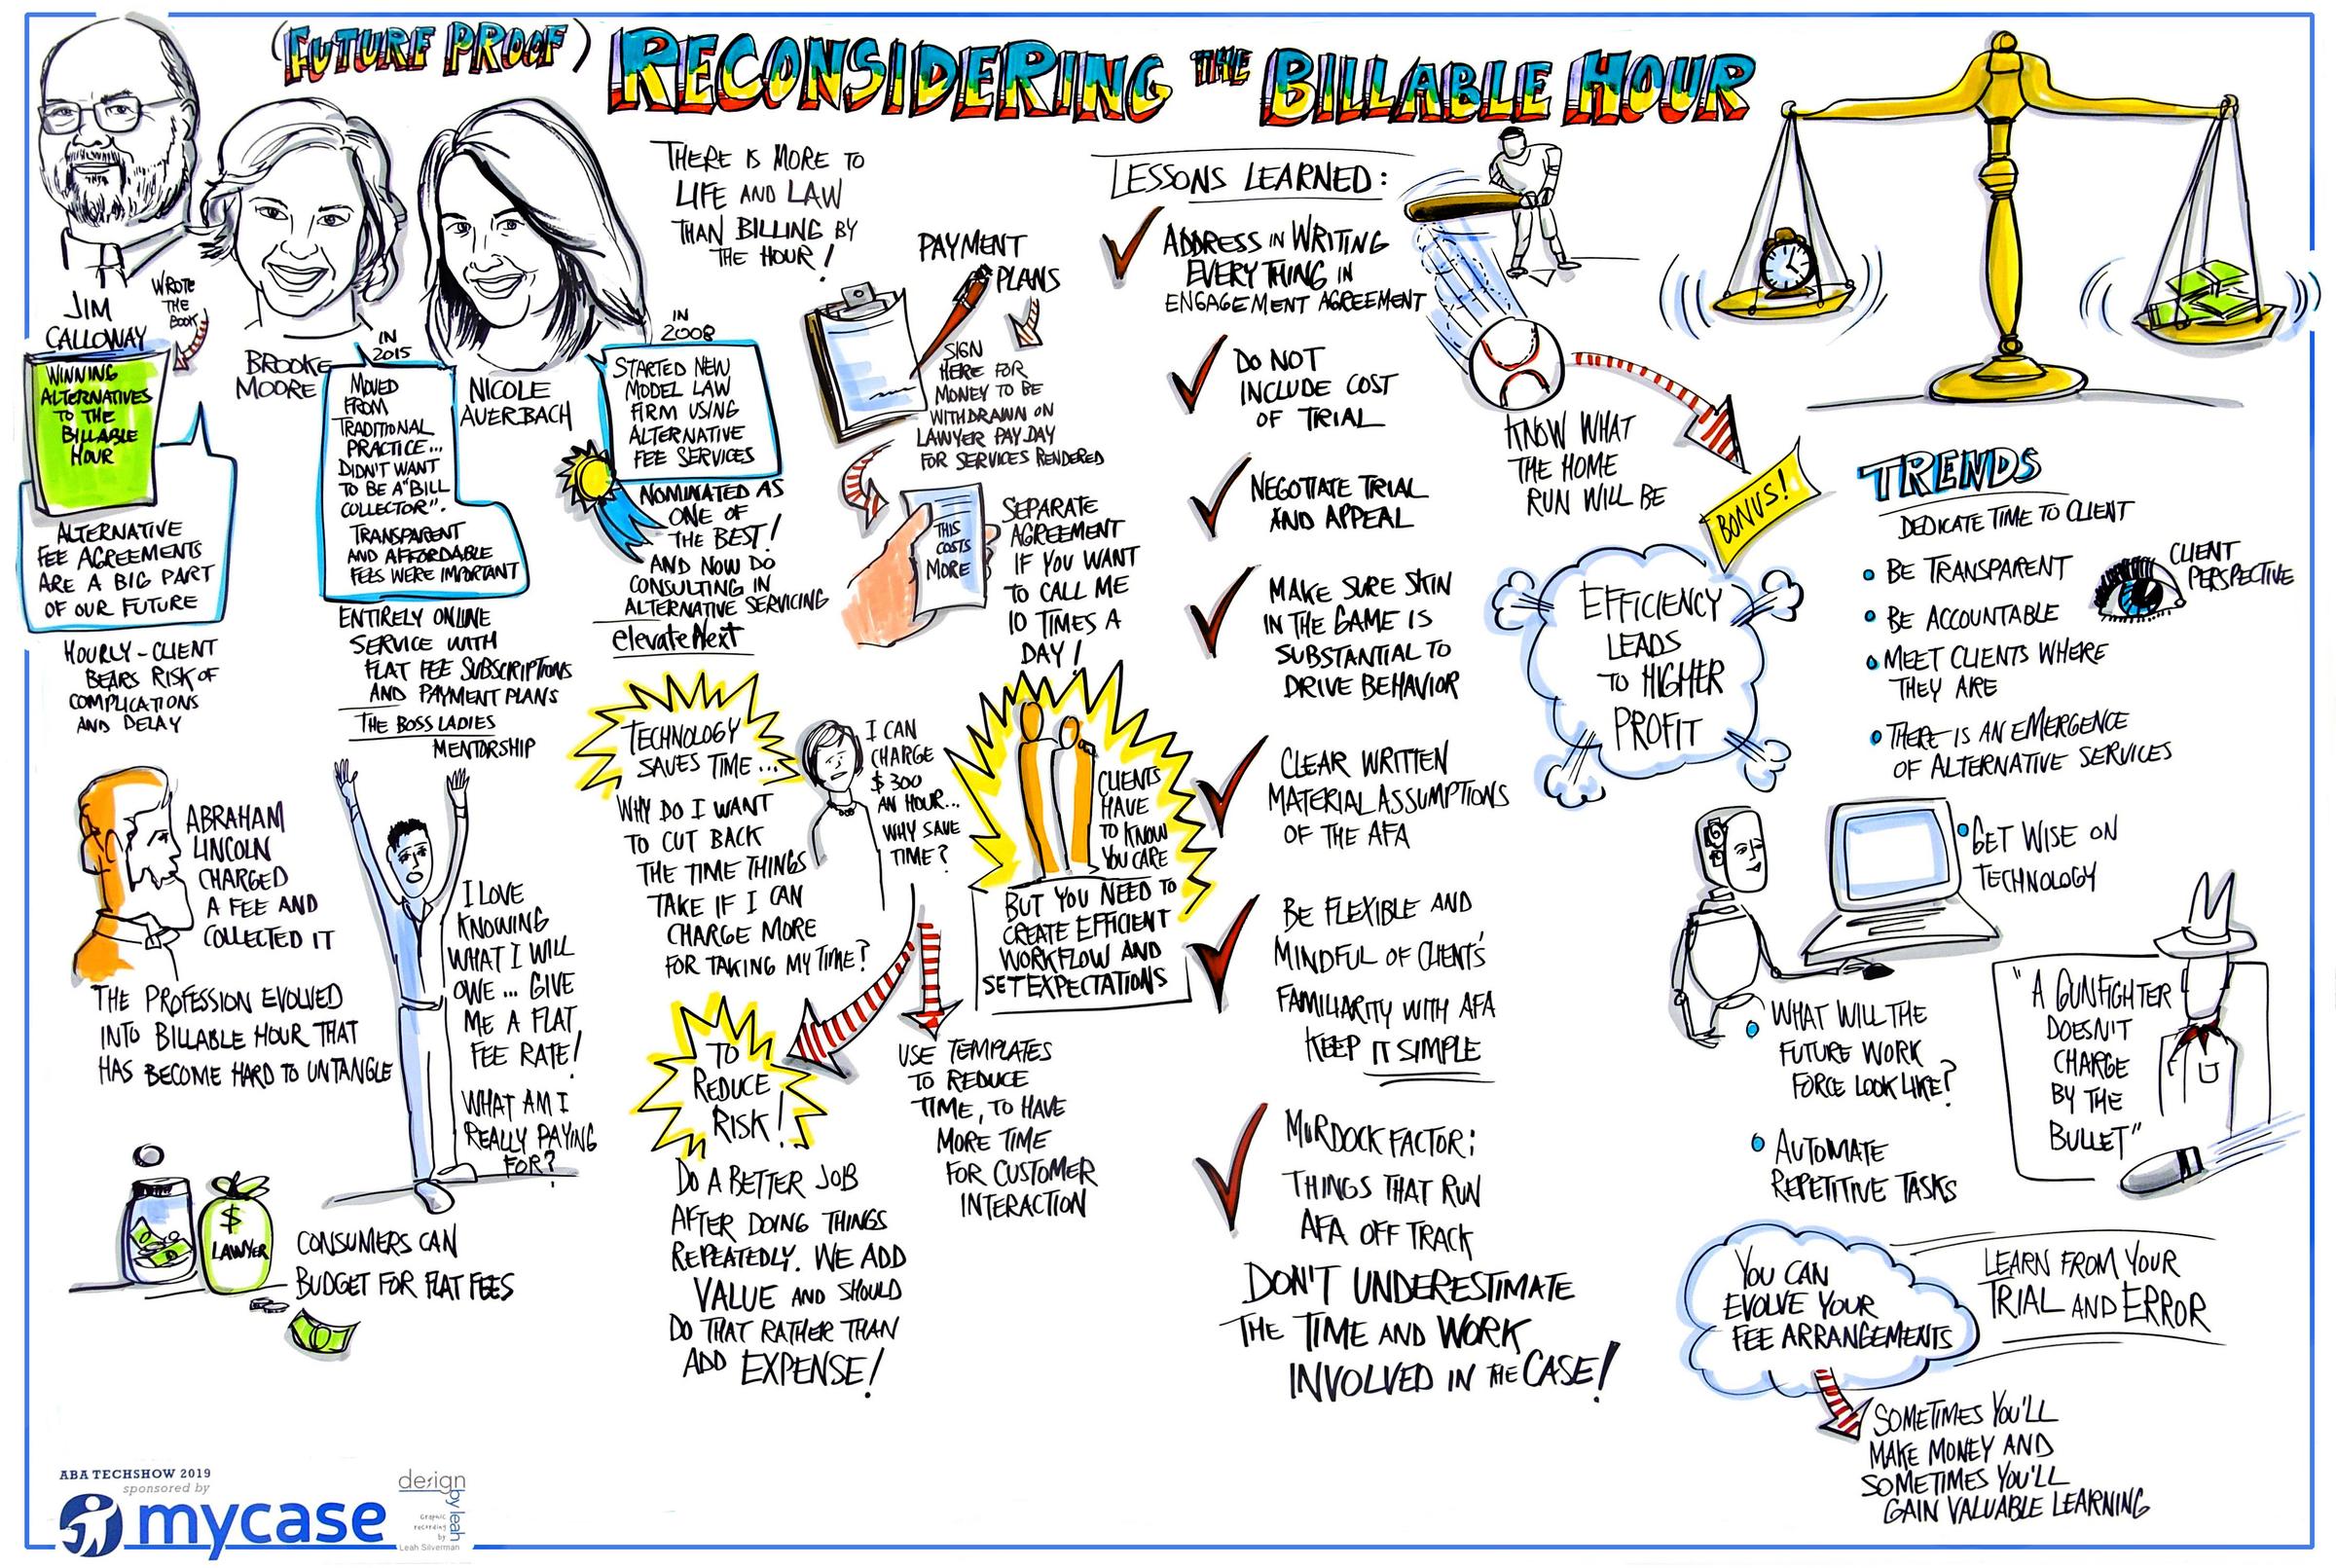 (FUTURE PROOF) RECONSIDERING THE BILLABLE HOUR
JIM
CALLOWAY
WROTE
THE
BOOK
WINNING
ALTERNATIVES
TO THE
BILLABLE
HOUR
ALTERNATIVE
FEE AGREEMENTS
ARE A BIG PART
OF OUR FUTURE
HOURLY - CLIENT
BEARS RISK OF
COMPLICATIONS
AND DELAY
BROOKE
MOORE
IN
2015
MOVED
FROM
TRADITIONAL
PRACTICE...
DIDN'T WANT
TO BE A "BILL
COLLECTOR".
TRANSPARENT
AND AFFORDABLE
FEES WERE IMPORTANT
ENTIRELY ONLINE
SERVICE WITH
FLAT FEE SUBSCRIPTIONS
AND PAYMENT PLANS
THE BOSS LADIES
MENTORSHIP
NICOLE
AUERBACH
IN
2008
STARTED NEW
MODEL LAW
FIRM USING
ALTERNATIVE
FEE SERVICES
NOMINATED AS
ONE OF
THE BEST!
AND NOW DO
CONSULTING IN
ALTERNATIVE SERVICING
elevateNext
ABRAHAM
LINCOLN
CHARGED
A FEE AND
COLLECTED IT
THE PROFESSION EVOLVED
INTO BILLABLE HOUR THAT
HAS BECOME HARD TO UNTANGLE
I LOVE
KNOWING
WHAT I WILL
OWE... GIVE
ME A FLAT
FEE RATE!
WHAT AM I
REALLY PAYING
FOR?
$
LAWYER
CONSUMERS CAN
BUDGET FOR FLAT FEES
THERE IS MORE TO
LIFE AND LAW
THAN BILLING BY
THE HOUR!
PAYMENT
PLANS
SIGN
HERE FOR
MONEY TO BE
WITHDRAWN ON
LAWYER PAY DAY
FOR SERVICES RENDERED
THIS
COSTS
MORE
SEPARATE
AGREEMENT
IF YOU WANT
TO CALL ME
10 TIMES A
DAY!
TECHNOLOGY
SAVES TIME...
WHY DO I WANT
TO CUT BACK
THE TIME THINGS
TAKE IF I CAN
CHARGE MORE
FOR TAKING MY TIME?
I CAN
CHARGE
$300
AN HOUR...
WHY SAVE
TIME?
CLIENTS
HAVE
TO KNOW
YOU CARE
BUT YOU NEED TO
CREATE EFFICIENT
WORKFLOW AND
SET EXPECTATIONS
TO
REDUCE
RISK!
DO A BETTER JOB
AFTER DOING THINGS
REPEATEDLY. WE ADD
VALUE AND SHOULD
DO THAT RATHER THAN
ADD EXPENSE!
USE TEMPLATES
TO REDUCE
TIME, TO HAVE
MORE TIME
FOR CUSTOMER
INTERACTION
LESSONS LEARNED:
ADDRESS IN WRITING
EVERYTHING IN
ENGAGEMENT AGREEMENT
DO NOT
INCLUDE COST
OF TRIAL
NEGOTIATE TRIAL
AND APPEAL
MAKE SURE SKIN
IN THE GAME IS
SUBSTANTIAL TO
DRIVE BEHAVIOR
CLEAR WRITTEN
MATERIAL ASSUMPTIONS
OF THE AFA
BE FLEXIBLE AND
MINDFUL OF CLIENT'S
FAMILIARITY WITH AFA
KEEP IT SIMPLE
MURDOCK FACTOR:
THINGS THAT RUN
AFA OFF TRACK
DON'T UNDERESTIMATE
THE TIME AND WORK
INVOLVED IN THE CASE!
KNOW WHAT
THE HOME
RUN WILL BE
BONUS!
EFFICIENCY
LEADS
TO HIGHER
PROFIT
TRENDS
DEDICATE TIME TO CLIENT
• BE TRANSPARENT
• BE ACCOUNTABLE
• MEET CLIENTS WHERE
THEY ARE
• THERE IS AN EMERGENCE
OF ALTERNATIVE SERVICES
CLIENT
PERSPECTIVE
• GET WISE ON
TECHNOLOGY
• WHAT WILL THE
FUTURE WORK
FORCE LOOK LIKE?
• AUTOMATE
REPETITIVE TASKS
"A GUNFIGHTER
DOESN'T
CHARGE
BY THE
BULLET"
YOU CAN
EVOLVE YOUR
FEE ARRANGEMENTS
LEARN FROM YOUR
TRIAL AND ERROR
SOMETIMES YOU'LL
MAKE MONEY AND
SOMETIMES YOU'LL
GAIN VALUABLE LEARNING
ABA TECHSHOW 2019
sponsored by
mycase
design
by leah
Graphic
recording
by
Leah Silverman